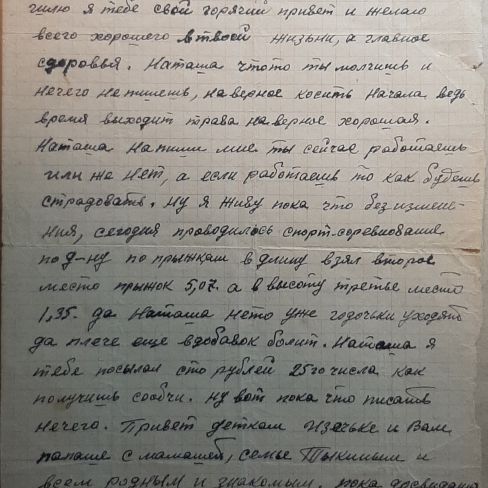 шлю я тебе свой горячий привет и желаю
всего хорошего в твоей жизьни, а главное
сдоровья. Наташа чтото ты молчишь и
нечего не пишешь, наверное косить начала ведь
время выходит трава наверное хорошая.
Наташа напиши мне ты сейчас работаешь
или же нет, а если работаешь то как будешь
страдовать. ну я живу пока что без измене-
ния, сегодня проводилось спорт-соревнование
по д-ну по прыжкам в длину взял второе
место прыжок 5,07. а в высоту третье место
1,35. да Наташа нето уже годочьки уходять
да плече еще вдобавок болит. Наташа я
тебе посылал сто рублей 25го числа как
получишь сообчи. ну вот пока что писать
нечего. Привет деткам и Вам
папаше с мамашей, семье и
всем родным и знакомым. пока